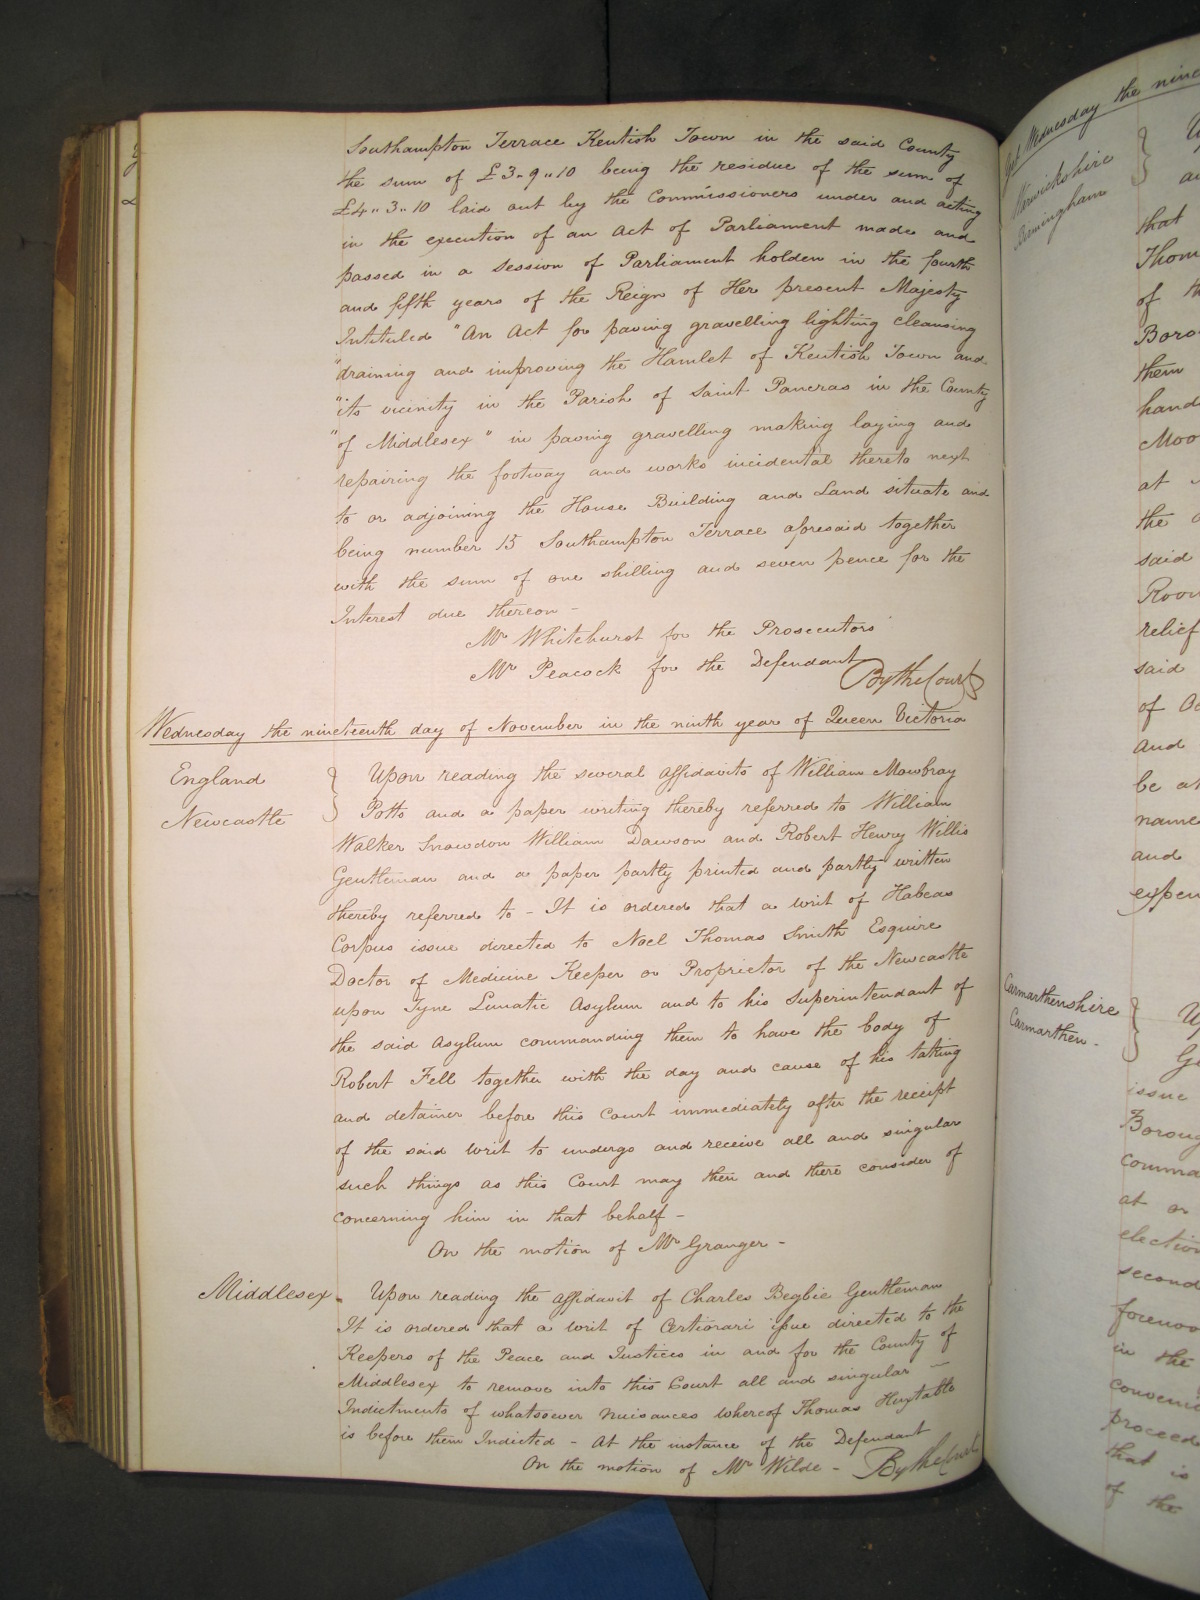 Southampton Terrace Kentish Town in the said County
the sum of £3 " 9 " 10 being the residue of the sum of
£4 " 3 " 10 laid out by the Commissioners under and acting
in the execution of an Act of Parliament made and
passed in a Session of Parliament holden in the fourth
and fifth years of the Reign of Her present Majesty
Intituled "An Act for paving gravelling lighting cleansing
"draining and improving the Hamlet of Kentish Town and
"its vicinity in the Parish of Saint Pancras in the County
"of Middlesex" in paving gravelling making laying and
repairing the footway and works incidental thereto next
to or adjoining the House Building and Land situate and
being number 15 Southampton Terrace aforesaid together
with the sum of one shilling and seven pence for the
Interest due thereon -
Mr Whitehurst for the Prosecutors
Mr Peacock for the Defendant
By the Court
Wednesday the nineteenth day of November in the ninth year of Queen Victoria
England
Newcastle
Upon reading the several affidavits of William Mowbray
Potts and a paper writing thereby referred to William
Walker Snowdon William Dawson and Robert Henry Willis
Gentleman and a paper partly printed and partly written
thereby referred to - It is ordered that a writ of Habeas
Corpus issue directed to Noel Thomas Smith Esquire
Doctor of Medicine Keeper or Proprietor of the Newcastle
upon Tyne Lunatic Asylum and to his Superintendant of
the said Asylum commanding them to have the body of
Robert Fell together with the day and cause of his taking
and detainer before this Court immediately after the receipt
of the said writ to undergo and receive all and singular
such things as this Court may then and there consider of
concerning him in that behalf -
On the motion of Mr Granger -
Middlesex -
Upon reading the affidavit of Charles Begbie Gentleman
It is ordered that a writ of Certiorari issue directed to the
Keepers of the Peace and Justices in and for the County of
Middlesex to remove into this Court all and singular
Indictments of whatsoever nuisances whereof Thomas Huxtable
is before them Indicted - At the instance of the Defendant
On the motion of Mr Wilde -
By the Court
Yet Wednesday the nine
Warwickshire
Birmingham
that
Thom
of th
Boro
them
hand
Moo
at
the
said
Room
relief
said
of
and
be at
name
and
expen
Carmarthenshire
Carmarthen -
issue
Boroug
comma
at or
election
second
forenoo
in the
conveni
proceed
that is
of the